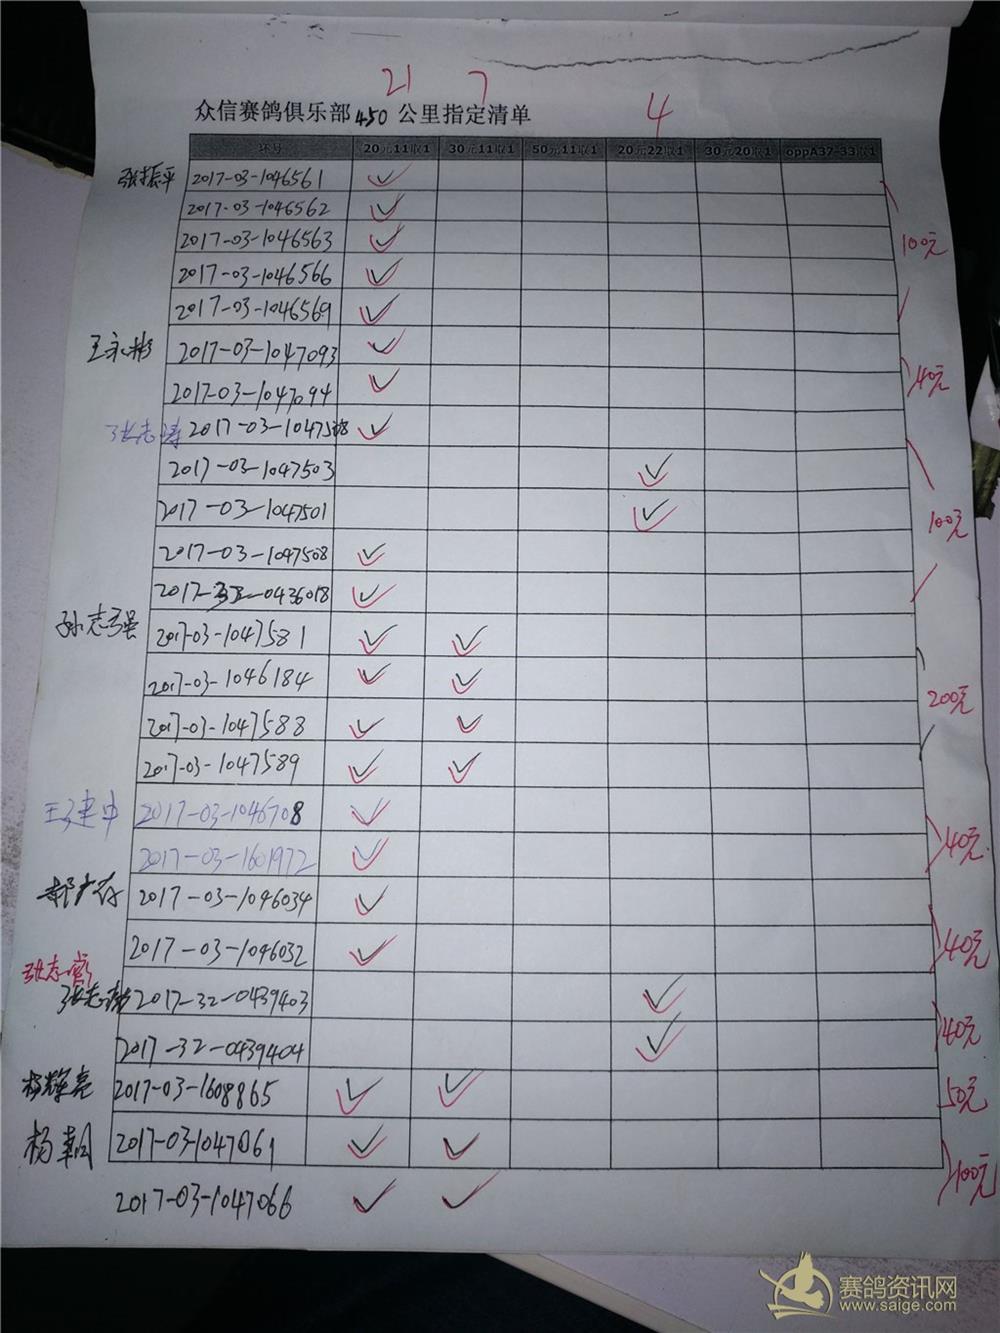 21 7 4
众信赛鸽俱乐部450公里指定清单
环号 20元11取1 30元11取1 50元11取1 20元22取1 30元20取1 oppA37-33取1
张振平 2017-03-1046561 ✓
2017-03-1046562 ✓
2017-03-1046563 ✓ 100元
2017-03-1046566 ✓
2017-03-1046569 ✓
王永彬 2017-03-1047093 ✓
2017-03-1047094 ✓ 40元
张志涛 2017-03-1047518 ✓
2017-03-1047503 ✓
2017-03-1047501 ✓ 100元
2017-03-1047508 ✓
2017-32-0436018 ✓
孙志强 2017-03-1047581 ✓ ✓
2017-03-1046184 ✓ ✓ 200元
2017-03-1047588 ✓ ✓
2017-03-1047589 ✓ ✓
王建申 2017-03-1046708 ✓
2017-03-1601972 ✓ 40元
2017-03-1046034 ✓
2017-03-1046032 ✓ 40元
张志
张志 2017-32-0439403 ✓
2017-32-0439404 ✓ 40元
杨辉亮 2017-03-1608865 ✓ ✓ 50元
杨朝 2017-03-1047061 ✓ ✓
2017-03-1047066 ✓ ✓ 100元
赛鸽资讯网
www.saige.com